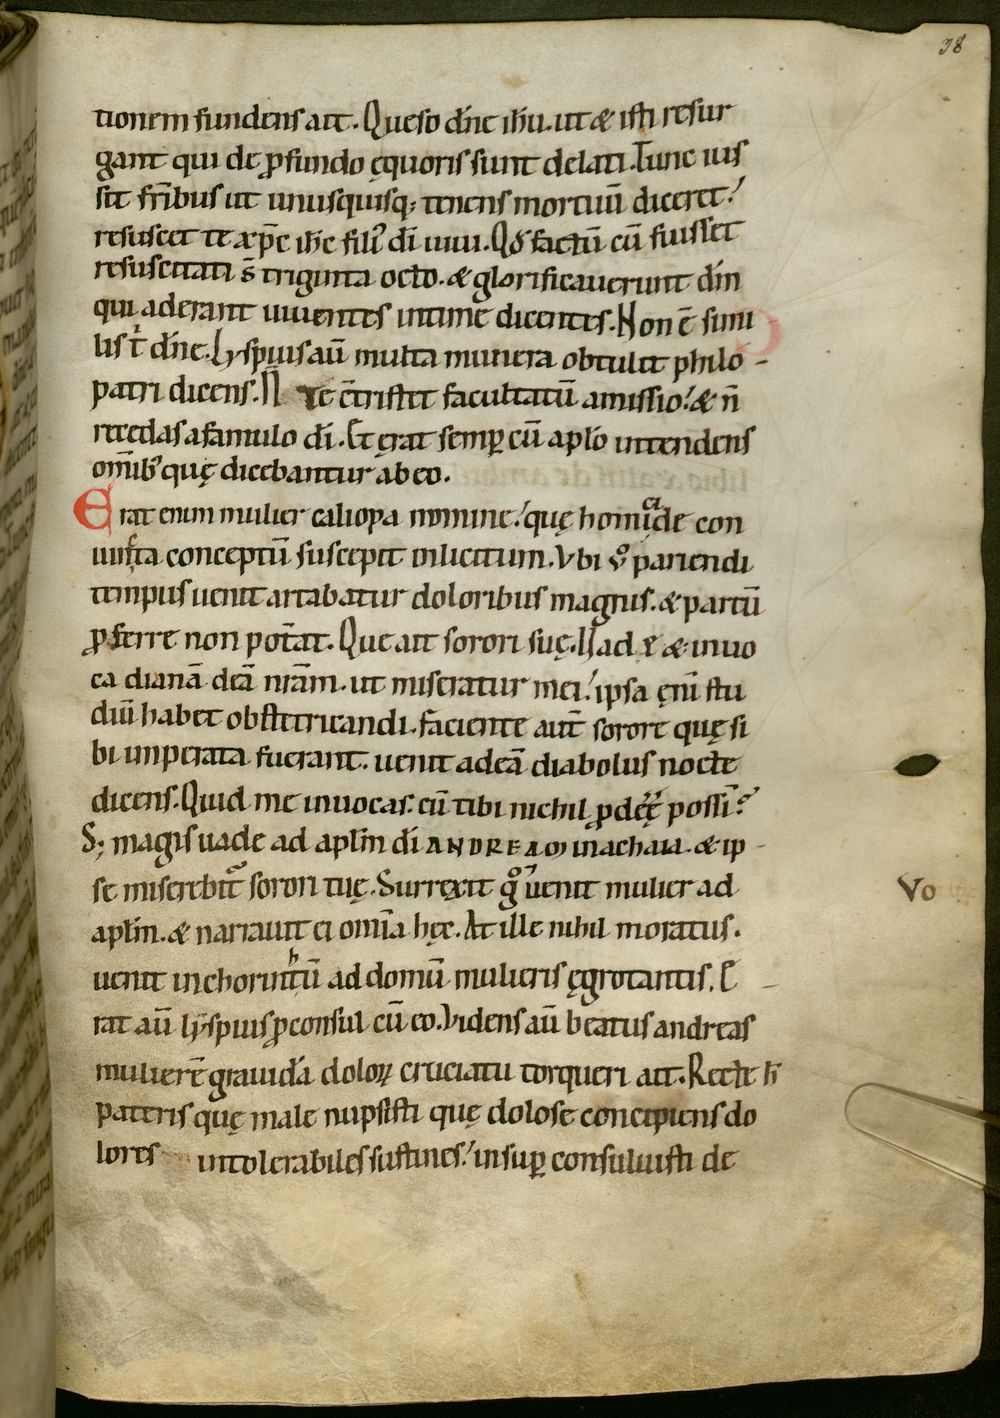 38
tionem fundens ait. Queso dñe ihu. ut & isti resur
gant qui de ꝓfundo ęquoris sunt delati. Tunc ius
sit frib̄us ut unusquisq; tenens mortuū diceret.
resuscet te xp̄c ihc fili' dī uiui. Qđ factū cū fuisset
resuscitati s̄ triginta octo. & glorificauerunt dn̄m
qui aderant uiuentes intime dicentes. Non ē simi
lis t' dñe. Lyspius aū multa munera obtulit philo-
patri dicens. N te c̄tristet facultatū amissio. & n̄
recedas a famulo dī. Et erat semꝑ cū aplo intendens
omīb' quę dicebantur ab eo.
Erat enim mulier caliopa nomine. quę homicide con
iuncta conceptū suscepit inlicitum. Vbi v̊ pariendi
tempus uenit artabatur doloribus magnis. & partū
ꝓferre non pot̄at. Que ait sorori suę. Uade & inuo
ca dianā deā nrām. ut miseratur mei. ipsa eni stu
diū habet obstetricandi. faciente aut̄ sorore quę si
bi imperata fuerant. uenit ad eā diabolus nocte
dicens. Quid me inuocas. cū tibi nichil ꝓdeē possī?
S; magis uade ad aplm dī ANDREAM in achaia. & ip-
se miserebit' sorori tuę. Surrexit g° uenit mulier ad
aplm. & narrauit ei omīa hęc. At ille nihil moratus.
uenit in chorinthū ad domū mulieris ęgrotantis. E-
rat aū lyspius ꝓconsul cū eo. Videns aū beatus andreas
mulierē grauida doloꝝ cruciatu torqueri ait. Recte h'
pateris quę male nupsisti quę dolose concipiens do
lores intolerabiles sustines. insuꝑ consuluisti de
Vo